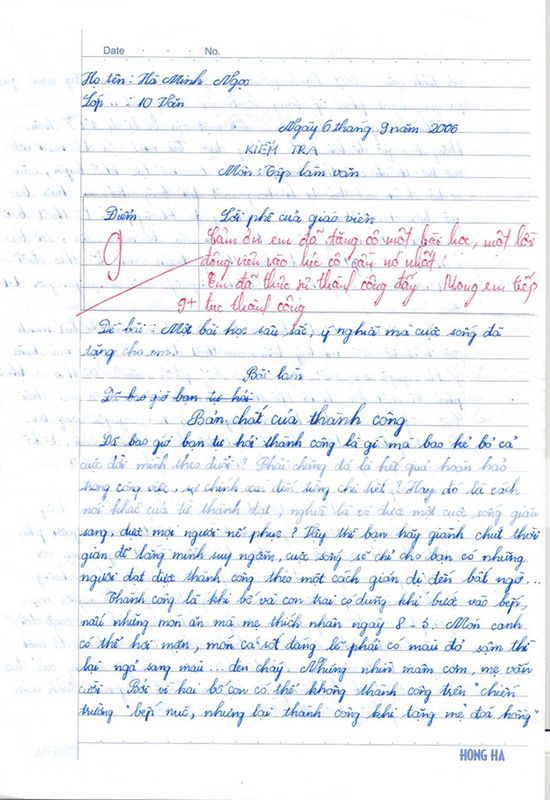 Date No.
Họ tên: Hà Minh Ngọc
Lớp..: 10 Văn
Ngày 6 tháng 9 năm 2006
KIỂM TRA
Môn: Tập làm văn
Điểm
Lời phê của giáo viên
9
Cảm ơn em đã tặng cô một bài học, một lời
động viên vào lúc cô cần nó nhất!
Em đã thực sự thành công đấy. Mong em tiếp
9+ tục thành công
Đề bài: Một bài học sâu sắc, ý nghĩa mà cuộc sống đã
tặng cho em.
Bài làm
Đã bao giờ bạn tự hỏi
Bản chất của thành công
Đã bao giờ bạn tự hỏi thành công là gì mà bao kẻ bỏ cả
cuộc đời mình theo đuổi? Phải chăng đó là kết quả hoàn hảo
trong công việc, sự chính xác đến từng chi tiết? Hay đó là cách
nói khác của từ thành đạt, nghĩa là có được một cuộc sống giàu
sang, được mọi người nể phục? Vậy thì bạn hãy giành chút thời
gian để lặng mình suy ngẫm, cuộc sống sẽ chỉ cho bạn có những
người đạt được thành công theo một cách giản dị đến bất ngờ...
Thành công là khi bố và con trai có dũng khí bước vào bếp,
nấu những món ăn mà mẹ thích nhân ngày 8-3. Món canh
có thể hơi mặn, món cá sốt đáng lẽ phải có màu đỏ sậm thì
lại ngả sang màu... đen cháy. Nhưng nhìn mâm cơm, mẹ vẫn
cười. Bởi vì hai bố con có thể không thành công trên "chiến
trường" bếp núc, nhưng lại thành công khi tặng mẹ "đoá hồng"
HONG HA